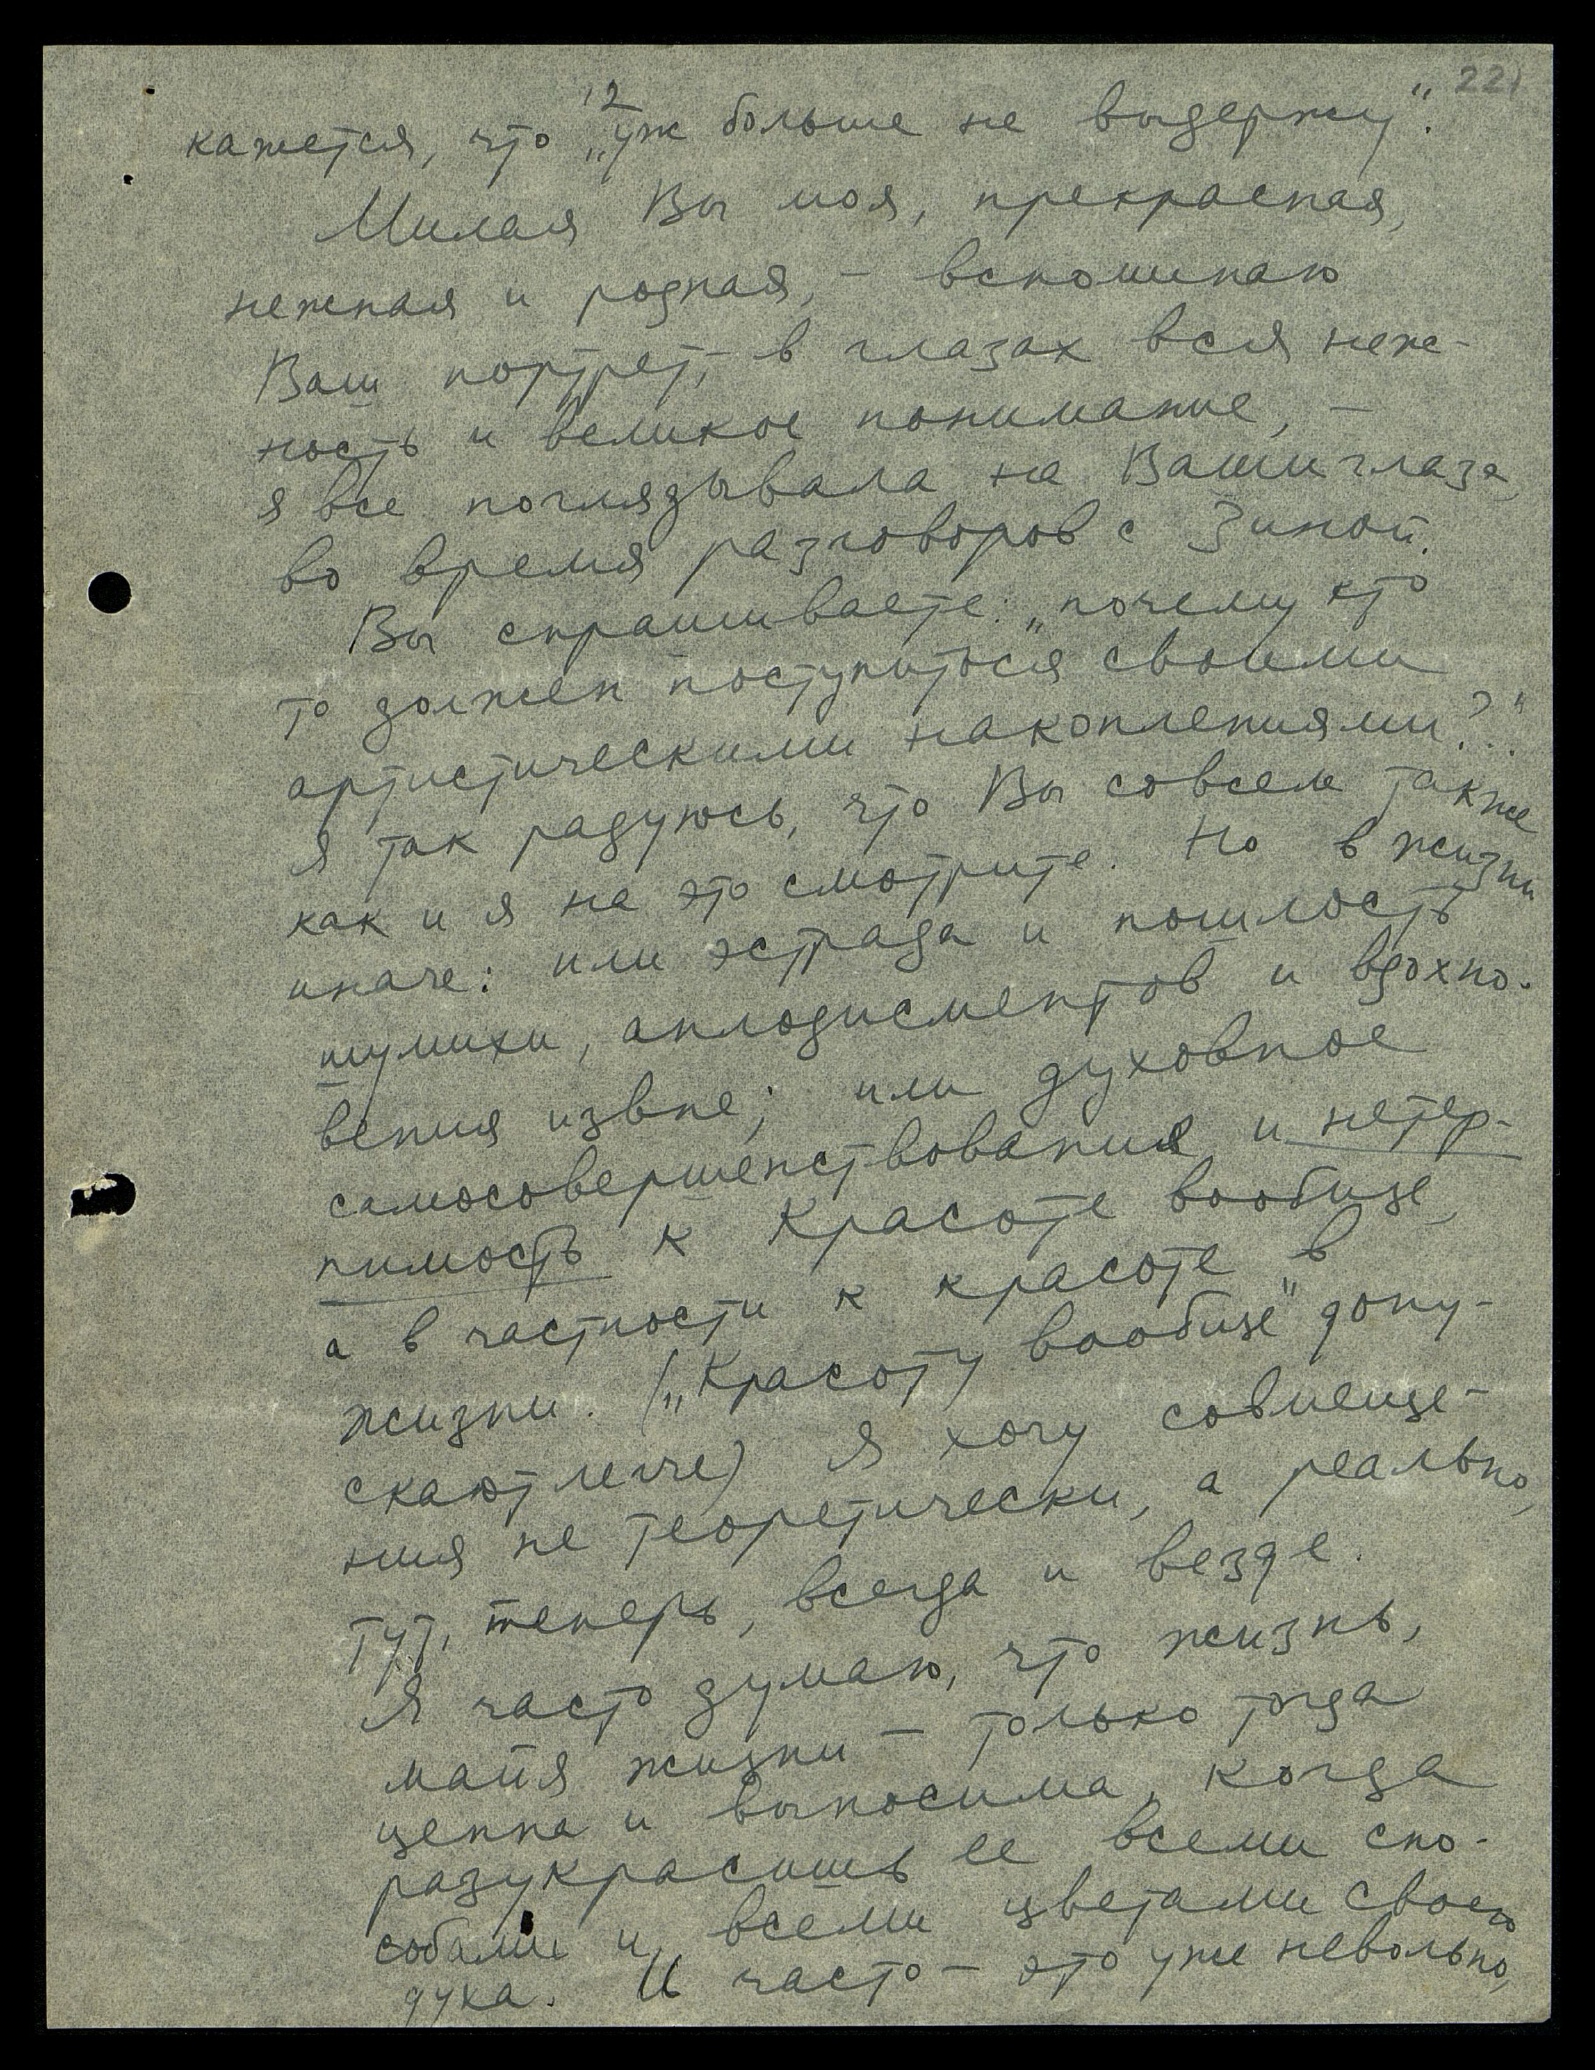 221
2
кажется, что „уж больше не выдержу".
Милая Вы моя, прекрасная,
нежная и родная, – вспоминаю
Ваш портрет, – в глазах вся неж-
ность и великое понимание, –
я все поглядывала на Ваши глаза,
во время разговоров с Зиной.
Вы спрашиваете: „почему кто
то должен поступиться своими
артистическими накоплениями?.."
Я так радуюсь, что Вы совсем также
как и я на это смотрите. Но в жизни
иначе: или эстрада и пошлость
шумихи, аплодисментов и вдохно-
вения извне; или духовное
самосовершенствования и нетер-
пимость к Красоте вообще,
а в частности к красоте в
жизни. („Красоту вообще" допу-
скают легче) Я хочу совмеще-
ния не теоретически, а реально,
тут, теперь, всегда и везде.
Я часто думаю, что жизнь,
майя жизни – только тогда
ценна и выносима, когда
разукрасишь ее всеми спо-
собами и всеми цветами своего
духа. И часто – это уже невольно,